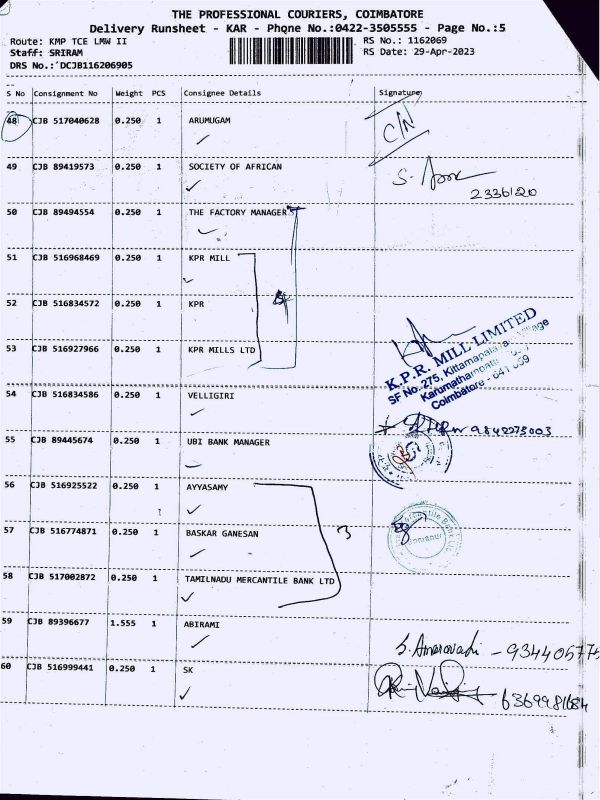 THE PROFESSIONAL COURIERS, COIMBATORE
Delivery Runsheet - KAR - Phone No.:0422-3505555 - Page No.:5
Route: KMP TCE LMW II RS No.: 1162069
Staff: SRIRAM RS Date: 29-Apr-2023
DRS No.: DCJB116206905
S No Consignment No Weight PCS Consignee Details Signature
48 CJB 517040628 0.250 1 ARUMUGAM C/N
49 CJB 89419573 0.250 1 SOCIETY OF AFRICAN
2336120
50 CJB 89494554 0.250 1 THE FACTORY MANAGER
51 CJB 516968469 0.250 1 KPR MILL
52 CJB 516834572 0.250 1 KPR
53 CJB 516927966 0.250 1 KPR MILLS LTD
K.P.R. MILL LIMITED
SF No. 275, Village
Coimbatore
54 CJB 516834586 0.250 1 VELLIGIRI
9842275003
55 CJB 89445674 0.250 1 UBI BANK MANAGER
56 CJB 516925522 0.250 1 AYYASAMY
57 CJB 516774871 0.250 1 BASKAR GANESAN 3
58 CJB 517002872 0.250 1 TAMILNADU MERCANTILE BANK LTD
59 CJB 89396677 1.555 1 ABIRAMI
60 CJB 516999441 0.250 1 SK 6369981684